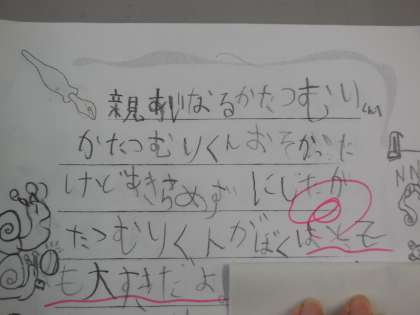 親あいなるかたつむりくん
かたつむりくんおそかった
けどあきらめず にじたか
たつむりくんがぼくはとそ
も大すきだよ。